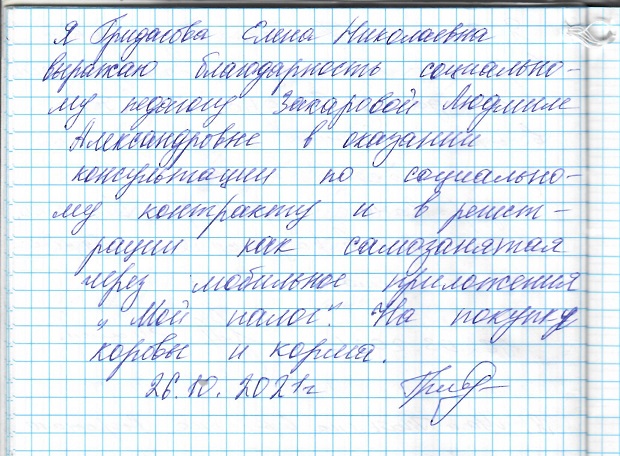 Я Гридасова Елена Николаевна
выражаю благодарность социально-
му педагогу Захаровой Людмиле
Александровне в оказании
консультации по социально-
му контракту и в регист-
рации как самозанятая
через мобильное приложения
„Мой налог". На покупку
коровы и корма.
26.10.2021г Грид